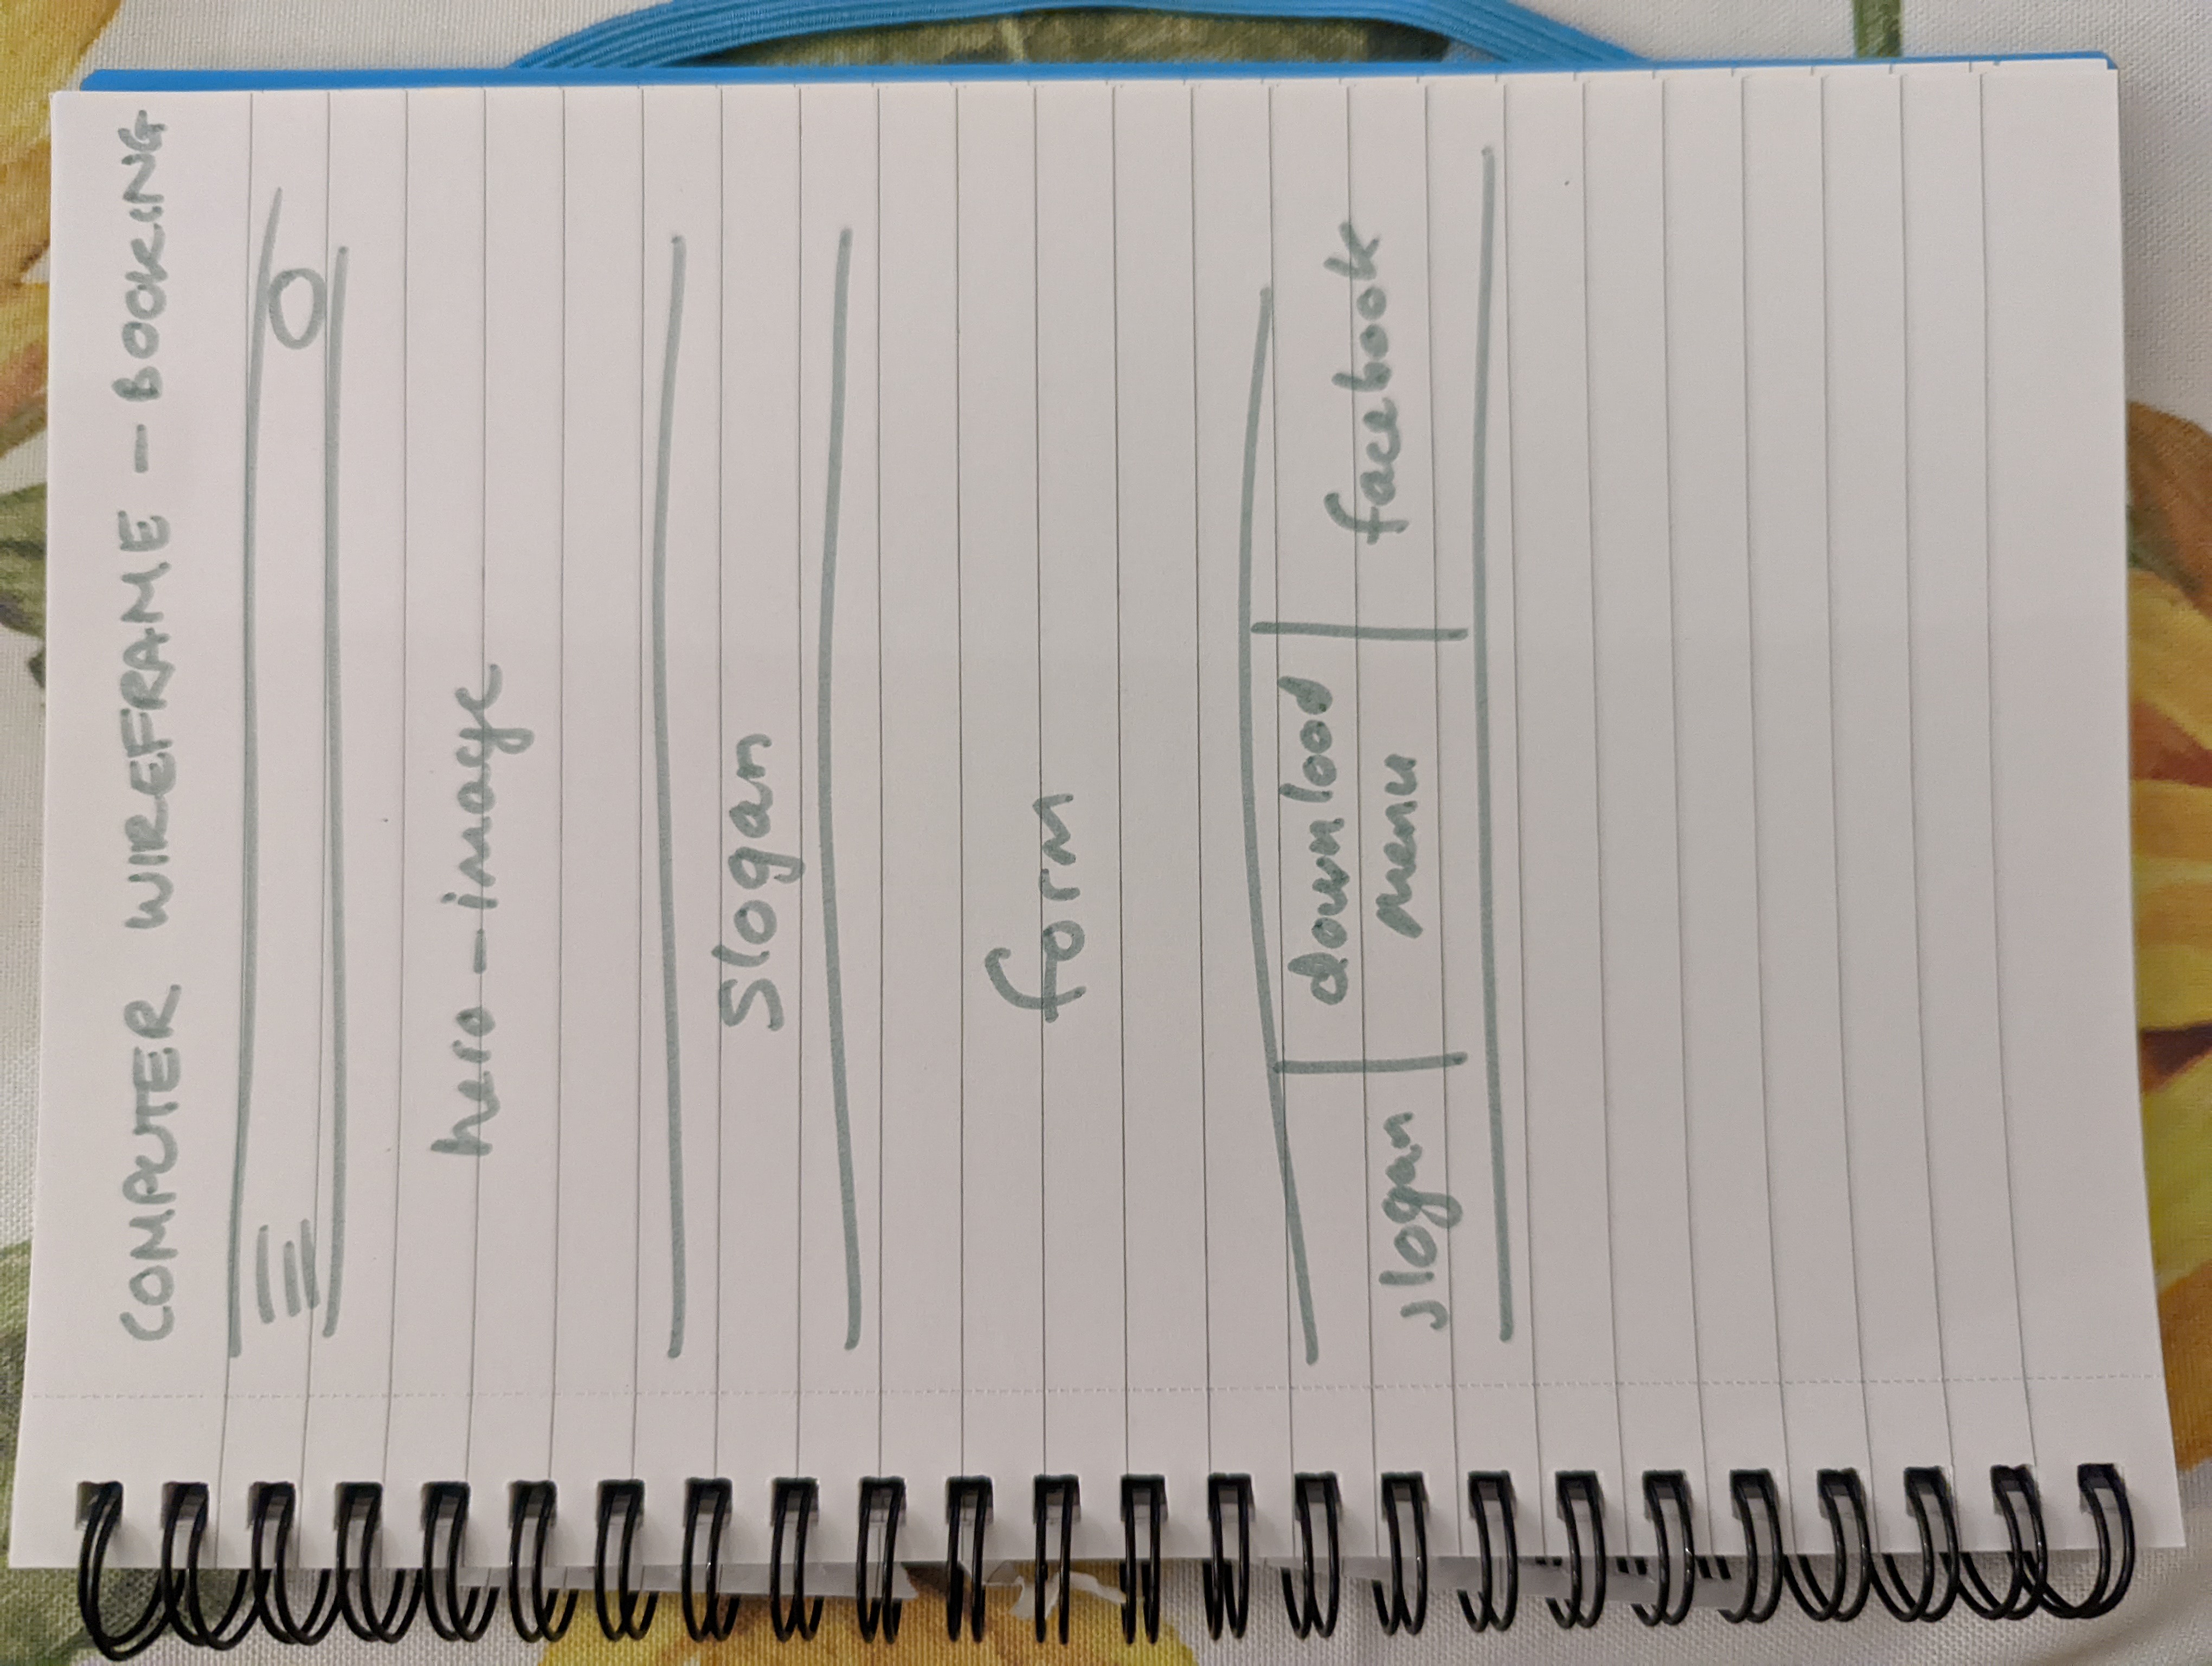 COMPUTER WIREFRAME - BOOKING
hero-image
Slogan
form
slogan
download
menu
facebook